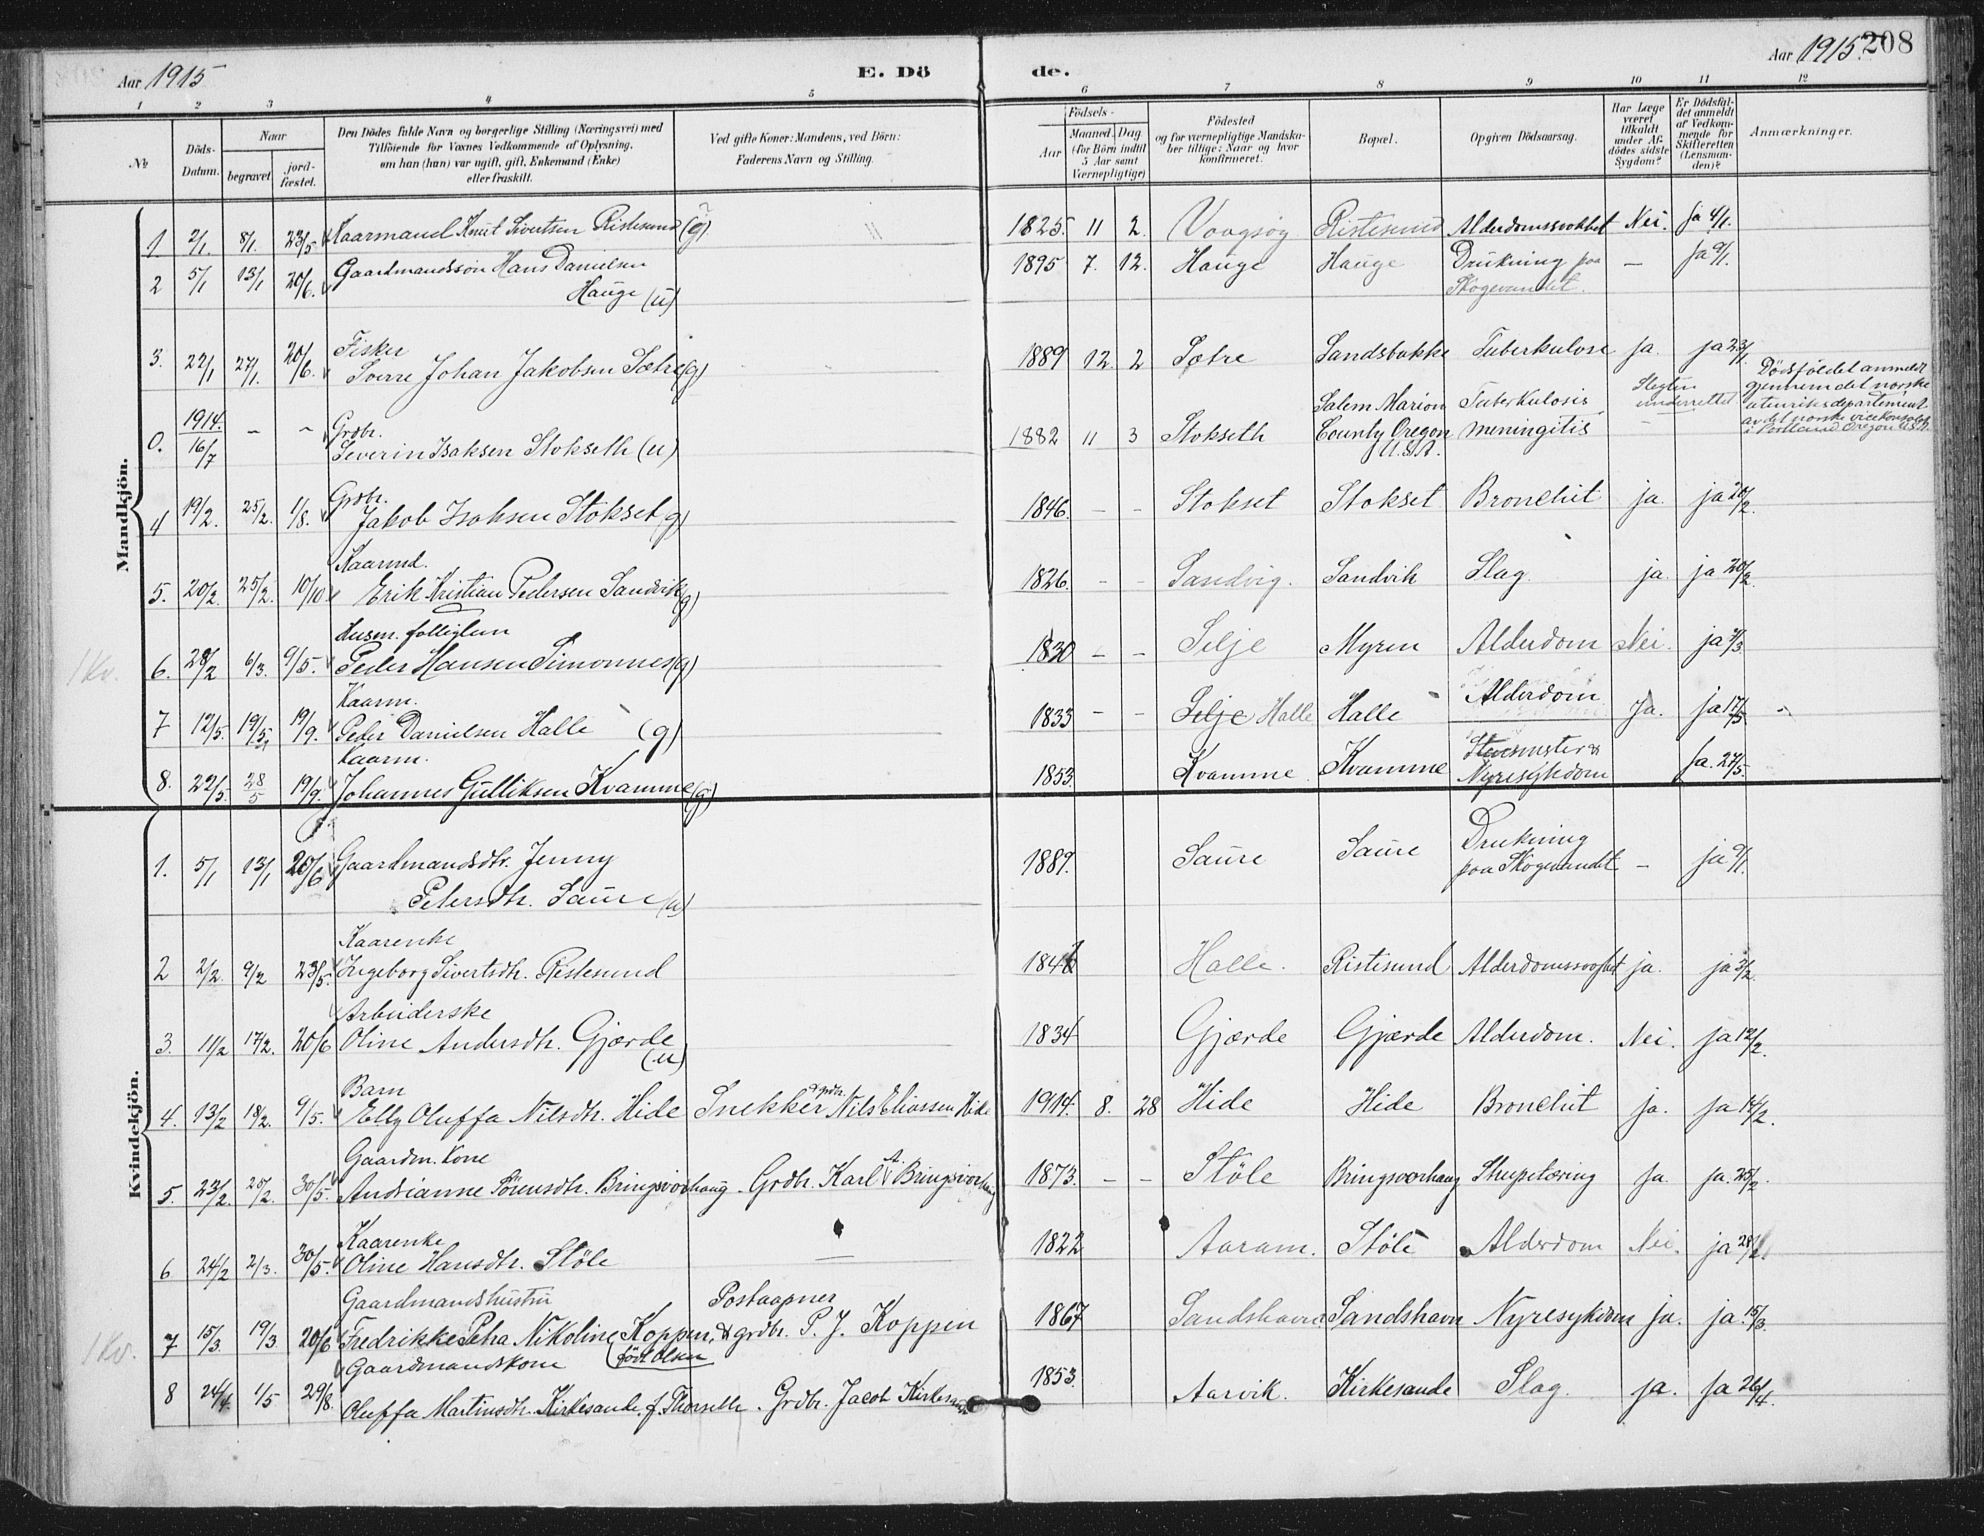 Aar 1915
E. Dö
de.
Aar 1915
208
1 2 3 4 5 6 7 8 9 10 11 12
№
Döds-
Datum.
Naar
begravet.
jord-
fæstet.
Den Dödes fulde Navn og borgerlige Stilling (Næringsvei) med
Tilföiende for Voxnes Vedkommende af Oplysning,
om han (hun) var ugift, gift, Enkemand (Enke)
eller fraskilt.
Ved gifte Koner: Mandens, ved Börn:
Faderens Navn og Stilling.
Födsels-
Aar
Maaned. Dag
(for Börn indtil
5 Aar samt
Værnepligtige)
Födested
og for værnepligtige Mandska-
ber tillige: Naar og hvor
konfirmeret.
Bopæl.
Opgiven Dödsaarsag.
Har Læge
været
tilkaldt
under Af-
dödes sidste
Sygdom?
Er Dödsfal-
det anmeldt
af Vedkom-
mende for
Skifteretten
(Lensman-
den)?
Anmærkninger.
Mandkjön.
1 2/1 8/1 23/5 Kaarmand Knut Sivertsen Ristesund (g) 1825. 11 2. Vaagsøy Ristesund Alderdomssvakhet Nei. Ja 4/1.
2 5/1 13/1 20/6. Gaardmandssön Hans Danielsen 1895 7. 12. Hauge Hauge Drukning paa — Ja 9/1.
Hauge (u) Skogevandet.
3. 22/1 27/1. 20/6. Fisker 1889 12. 2 Sætre Sandsbakke Tuberkulose ja. ja 23/1.
Sverre Johan Jakobsen Sætre (g)
0. 1914 16/7 – – Grdbr. 1882 11 3 Stokseth Salem Marion Tuberkulosis Slegten
Severin Isaksen Stokseth (u) County Oregon meningitis underrettet
U.S.A.
Dödsfaldet anmeldt
gjennem det norske
utenriksdepartement
av det norske vicekonsulat
i Portland Oregon U.S.A.
4 19/2. 25/2. 1/8. Grdbr. 1846. – – Stokset Stokset Bronchit ja. ja 20/2.
Jakob Isaksen Stokset (g)
5. 20/2. 25/2. 10/10 Kaarmd. 1826. – – Sandvig. Sandvik Slag. ja. ja 20/2.
Erik Kristian Pedersen Sandvik (g)
1 Kv. 6. 28/2 6/3. 9/5. Husm. 1830 – – Selje Myren Alderdom Nei. ja 3/3
Peder Hansen Simonnes (g)
7 12/5. 19/5 19/9. Kaarm. 1833 – – Selje Halle Halle Alderdom Ja. ja 17/5
Peder Danielsen Halle (g)
8. 22/5. 28/5 19/9. Kaarm. 1853. Kvamme Kvamme Nyresykdom Ja. 27/5
Johannes Gulliksen Kvamme (g)
Kvindekjön.
1. 5/1 13/1 20/6 Gaardmandsdtr. Jenny 1889. Saure Saure Drukning — ja 9/1.
Petersdtr. Saure (u) paa Skogevandet
2 2/2. 9/2 23/5. Kaarenke Halle. Ristesund Alderdomssvaghet ja. ja 3/2.
Ingeborg Sivertsdtr. Ristesund
3. 11/2 17/2. 20/6 Arbeiderske 1834 Gjærde Gjærde Alderdom. Nei. ja 12/2.
Oline Andersdtr. Gjærde (u)
4. 13/2 18/2. 9/5. Barn 1914. 8. 28 Hide Hide Bronchit ja. ja 14/2.
Elly Oluffa Nilsdtr. Hide Snekker & grdbr. Nils Eliassen Hide
5. 23/2. 30/5. Gaardm. Kone 1873. – – Stöle Bringsvorhaug Strupetæring Ja. ja. 25/2.
Andrianne Sörensdtr. Bringsvorhaug. Grdbr. Karl A. Bringsvorhaug
6 24/2 2/3. 30/5. Kaarenke 1822 Aaram. Stöle Alderdom Nei. ja 28/2
Oline Hansdtr. Stöle —
1 Kv. 7 15/3. 19/3 20/6 Gaardmandshustru Postaapner 1867 Sandshavn Sandshavn Nyresykdom ja. ja. 15/3.
Fredrikke Petra Nikoline Koppen, & grdbr. P. J. Koppen
(født Olsen
8 24/4 1/5 29/8. Gaardmandskone 1853. Aarvik. Kirkesande Slag. ja. Ja 26/4.
Oluffa Martinsdtr. Kirkesande. f. Thorseth. Grdbr. Jacob Kirkesande